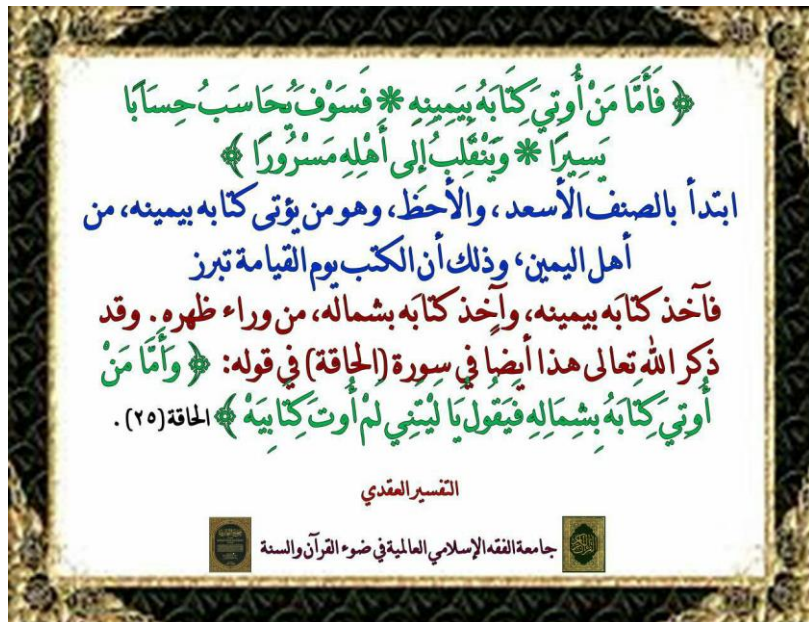 ﴿ فَأَمَّا مَنْ أُوتِيَ كِتَابَهُ بِيَمِينِهِ * فَسَوْفَ يُحَاسَبُ حِسَابًا
يَسِيرًا * وَيَنْقَلِبُ إِلَى أَهْلِهِ مَسْرُورًا ﴾
ابتدأ بالصنف الأسعد، والأحظ، وهو من يؤتى كتابه بيمينه، من
أهل اليمين، وذلك أن الكتب يوم القيامة تبرز
فآخذ كتابَه بيمينه، وآخذ كتابَه بشماله، من وراء ظهره. وقد
ذكر الله تعالى هذا أيضًا في سورة (الحاقة) في قوله: ﴿ وَأَمَّا مَنْ
أُوتِيَ كِتَابَهُ بِشِمَالِهِ فَيَقُولُ يَا لَيْتَنِي لَمْ أُوتَ كِتَابِيَهْ ﴾ الحاقة (٢٥).
التفسير العقدي
جامعة الفقه الإسلامي العالمية في ضوء القرآن والسنة